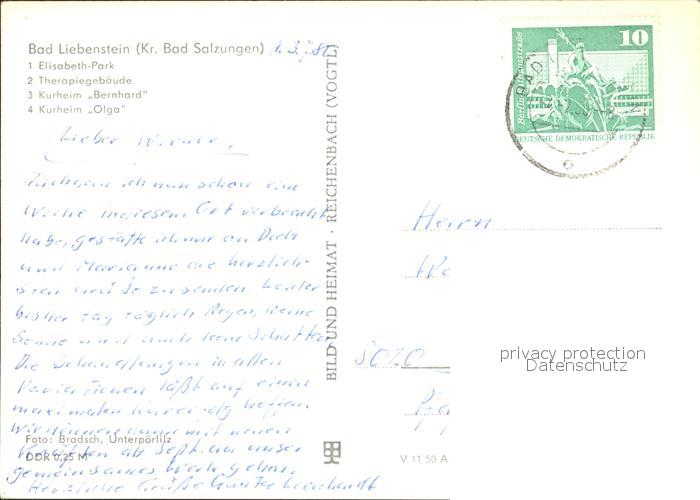 Bad Liebenstein (Kr. Bad Salzungen)
1 Elisabeth-Park
2 Therapiegebäude
3 Kurheim „Bernhard"
4 Kurheim „Olga"
Lieber Werner,
Nachdem ich nun schon eine
Woche in diesem Ort verbracht
habe, gestatte ich mir an Dich
und Marianne die herzlich-
sten Grüße zu senden. Leider
bisher tag täglich Regen, keine
Sonne und auch kein Schatten.
Die Behandlungen in allen
Variationen läßt auf einen
maximalen Kurerfolg hoffen.
Wir können dann mit neuen
Kräften ab Sept. an unser
gemeinsames Werk gehen.
Herzliche Grüße Günter
Foto: Bradsch, Unterpörlitz
DDR 0,25 M
BILD UND HEIMAT · REICHENBACH (VOGTL)
V 11 50 A
10
Berlin
DEUTSCHE DEMOKRATISCHE REPUBLIK
BAD
Herrn
We
privacy protection
Datenschutz